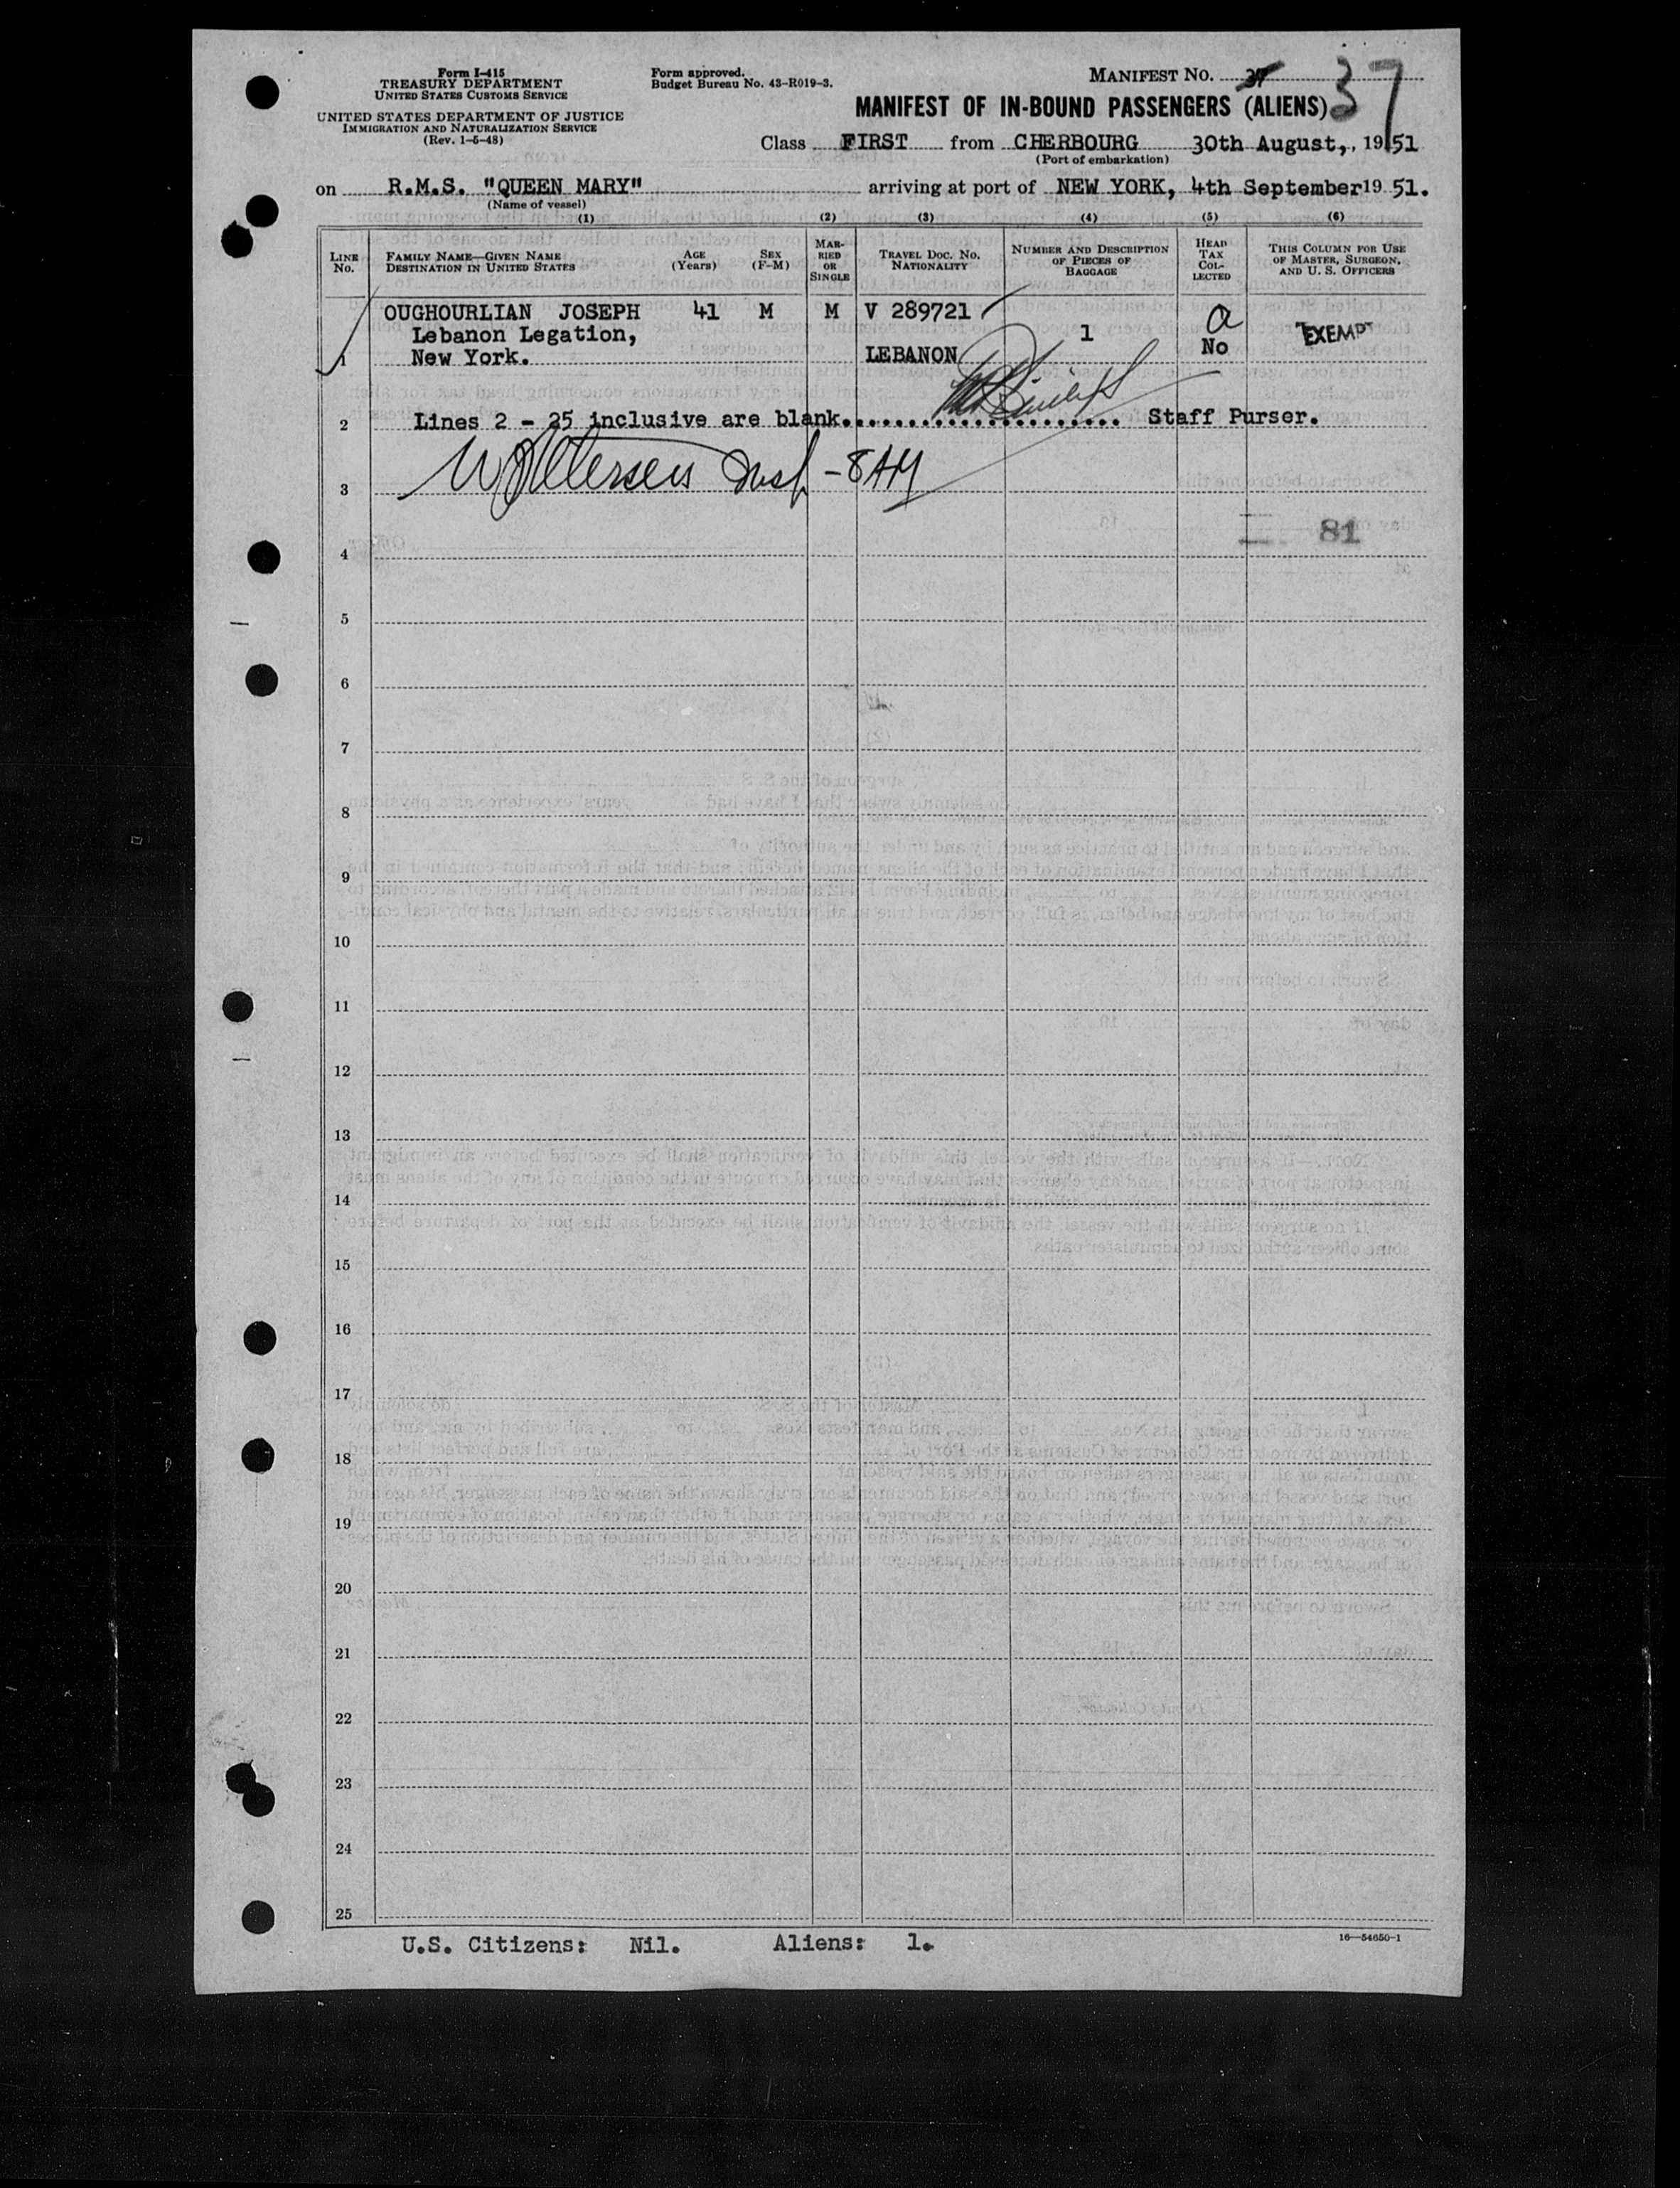 Form I-415
TREASURY DEPARTMENT
UNITED STATES CUSTOMS SERVICE
UNITED STATES DEPARTMENT OF JUSTICE
IMMIGRATION AND NATURALIZATION SERVICE
(Rev. 1-6-48)
Form approved.
Budget Bureau No. 43-R019-3.
MANIFEST NO. 37
MANIFEST OF IN-BOUND PASSENGERS (ALIENS)
Class FIRST from CHERBOURG 30th August, 1951
(Port of embarkation)
on R.M.S. "QUEEN MARY" arriving at port of NEW YORK, 4th September 1951.
(Name of vessel)
(1) (2) (3) (4) (5) (6)
LINE NO. FAMILY NAME—GIVEN NAME DESTINATION IN UNITED STATES AGE (Years) SEX (F-M) MARRIED OR SINGLE TRAVEL DOC. NO. NATIONALITY NUMBER AND DESCRIPTION OF PIECES OF BAGGAGE HEAD TAX COLLECTED THIS COLUMN FOR USE OF MASTER, SURGEON, AND U. S. OFFICERS
OUGHOURLIAN JOSEPH 41 M M V 289721
Lebanon Legation, 1 EXEMPT
1 New York. LEBANON No
2 Lines 2 - 25 inclusive are blank..................... Staff Purser.
3 Insp - 8 AM
81
4
5
6
7
8
9
10
11
12
13
14
15
16
17
18
19
20
21
22
23
24
25
U.S. Citizens: Nil. Aliens: 1.
16—54650-1